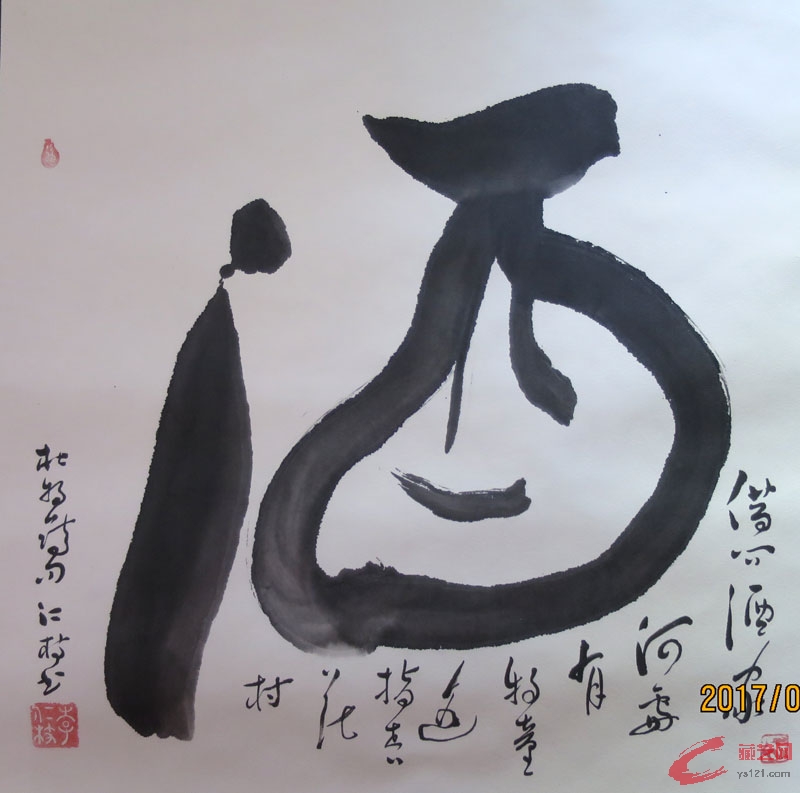 酒
借问酒家
何處
有
牧童
遥
指杏
花
村
杜牧诗句 仁枝书
李仁枝
2017/0
ys121.com